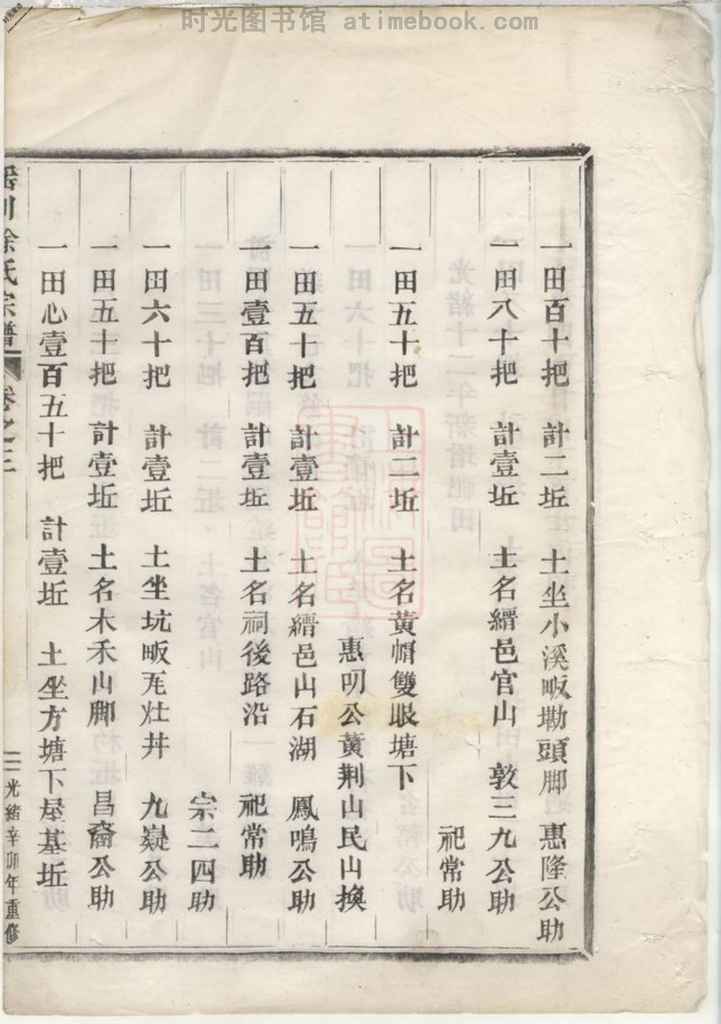 时光图书馆 atimebook.com
一田百十把 計二坵 土坐小溪畈墈頭脚 惠隆公助
一田八十把 計壹坵 土名縉邑官山 敦三九公助
祀常助
一田五十把 計二坵 土名黃㡌雙眼塘下
惠明公黃荆山民山換
一田五十把 計壹坵 土名縉邑山石湖 鳳鳴公助
一田壹百把 計壹坵 土名祠後路沿 祀常助
宗二四助
一田六十把 計壹坵 土坐坑畈瓦灶丼 九嶷公助
一田五十把 計壹坵 土名木禾山脚 昌裔公助
一田心壹百五十把 計壹坵 土坐方塘下屋基坵
川徐氏宗譜 卷之三 光緒辛卯年重修